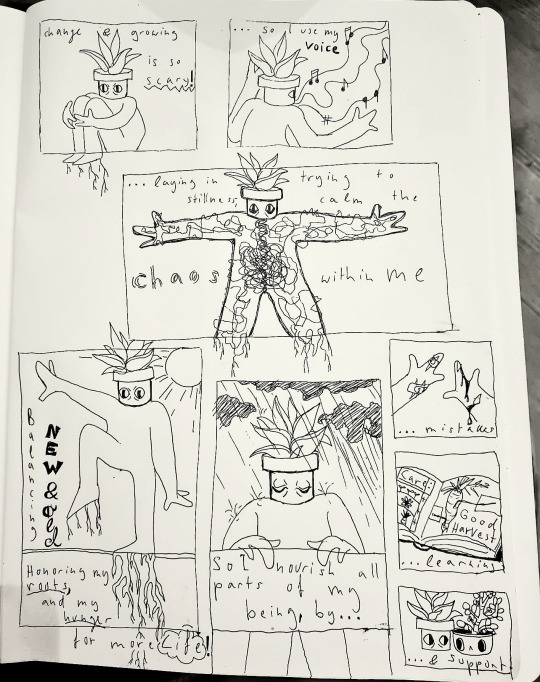 change & growing
is so
scary!
... so I use my
voice
... laying in
stillness,
trying to
calm the
chaos
within me
Balancing
NEW & old
Honoring my
roots,
and my
hunger
for more Life!
So I nourish all
parts of my
being, by...
... mistakes
Care
Good
Harvest
... learning
... & support